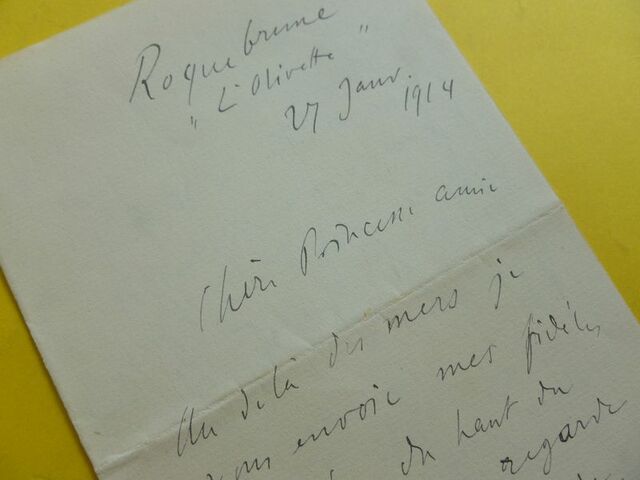 Roquebrune
"L'Olivette"
27 Janv. 1914
Chère Princesse amie
Au delà des mers je
vous envoie mes fidèles
du haut du
regarde